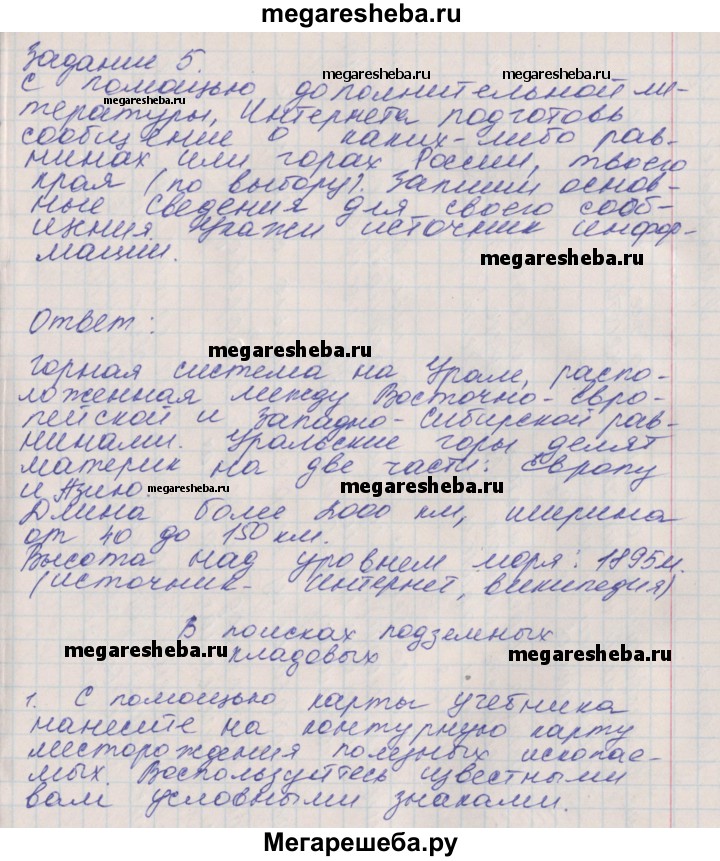 megaresheba.ru
Задание 5.
С помощью дополнительной ли-
megaresheba.ru
megaresheba.ru
тературы, Интернета подготовь
megaresheba.ru
сообщение о каких-либо рав-
нинах или горах России, твоего
края (по выбору). Запиши основ-
ные сведения для своего сооб-
щения. Укажи источник инфор-
мации.
megaresheba.ru
Ответ:
megaresheba.ru
горная система на Урале, распо-
ложенная между Восточно-Евро-
пейской и Западно-Сибирской рав-
нинами. Уральские горы делят
материк на две части: Европу
и Азию.
megaresheba.ru
megaresheba.ru
Длина более 2000 км, ширина
от 40 до 150 км.
Высота над уровнем моря: 1895м.
(источник- интернет, википедия)
В поисках подземных
кладовых
megaresheba.ru
megaresheba.ru
1. С помощью карты учебника
нанесите на контурную карту
месторождения полезных ископае-
мых. Воспользуйтесь известными
вам условными знаками.
Мегарешеба.ру